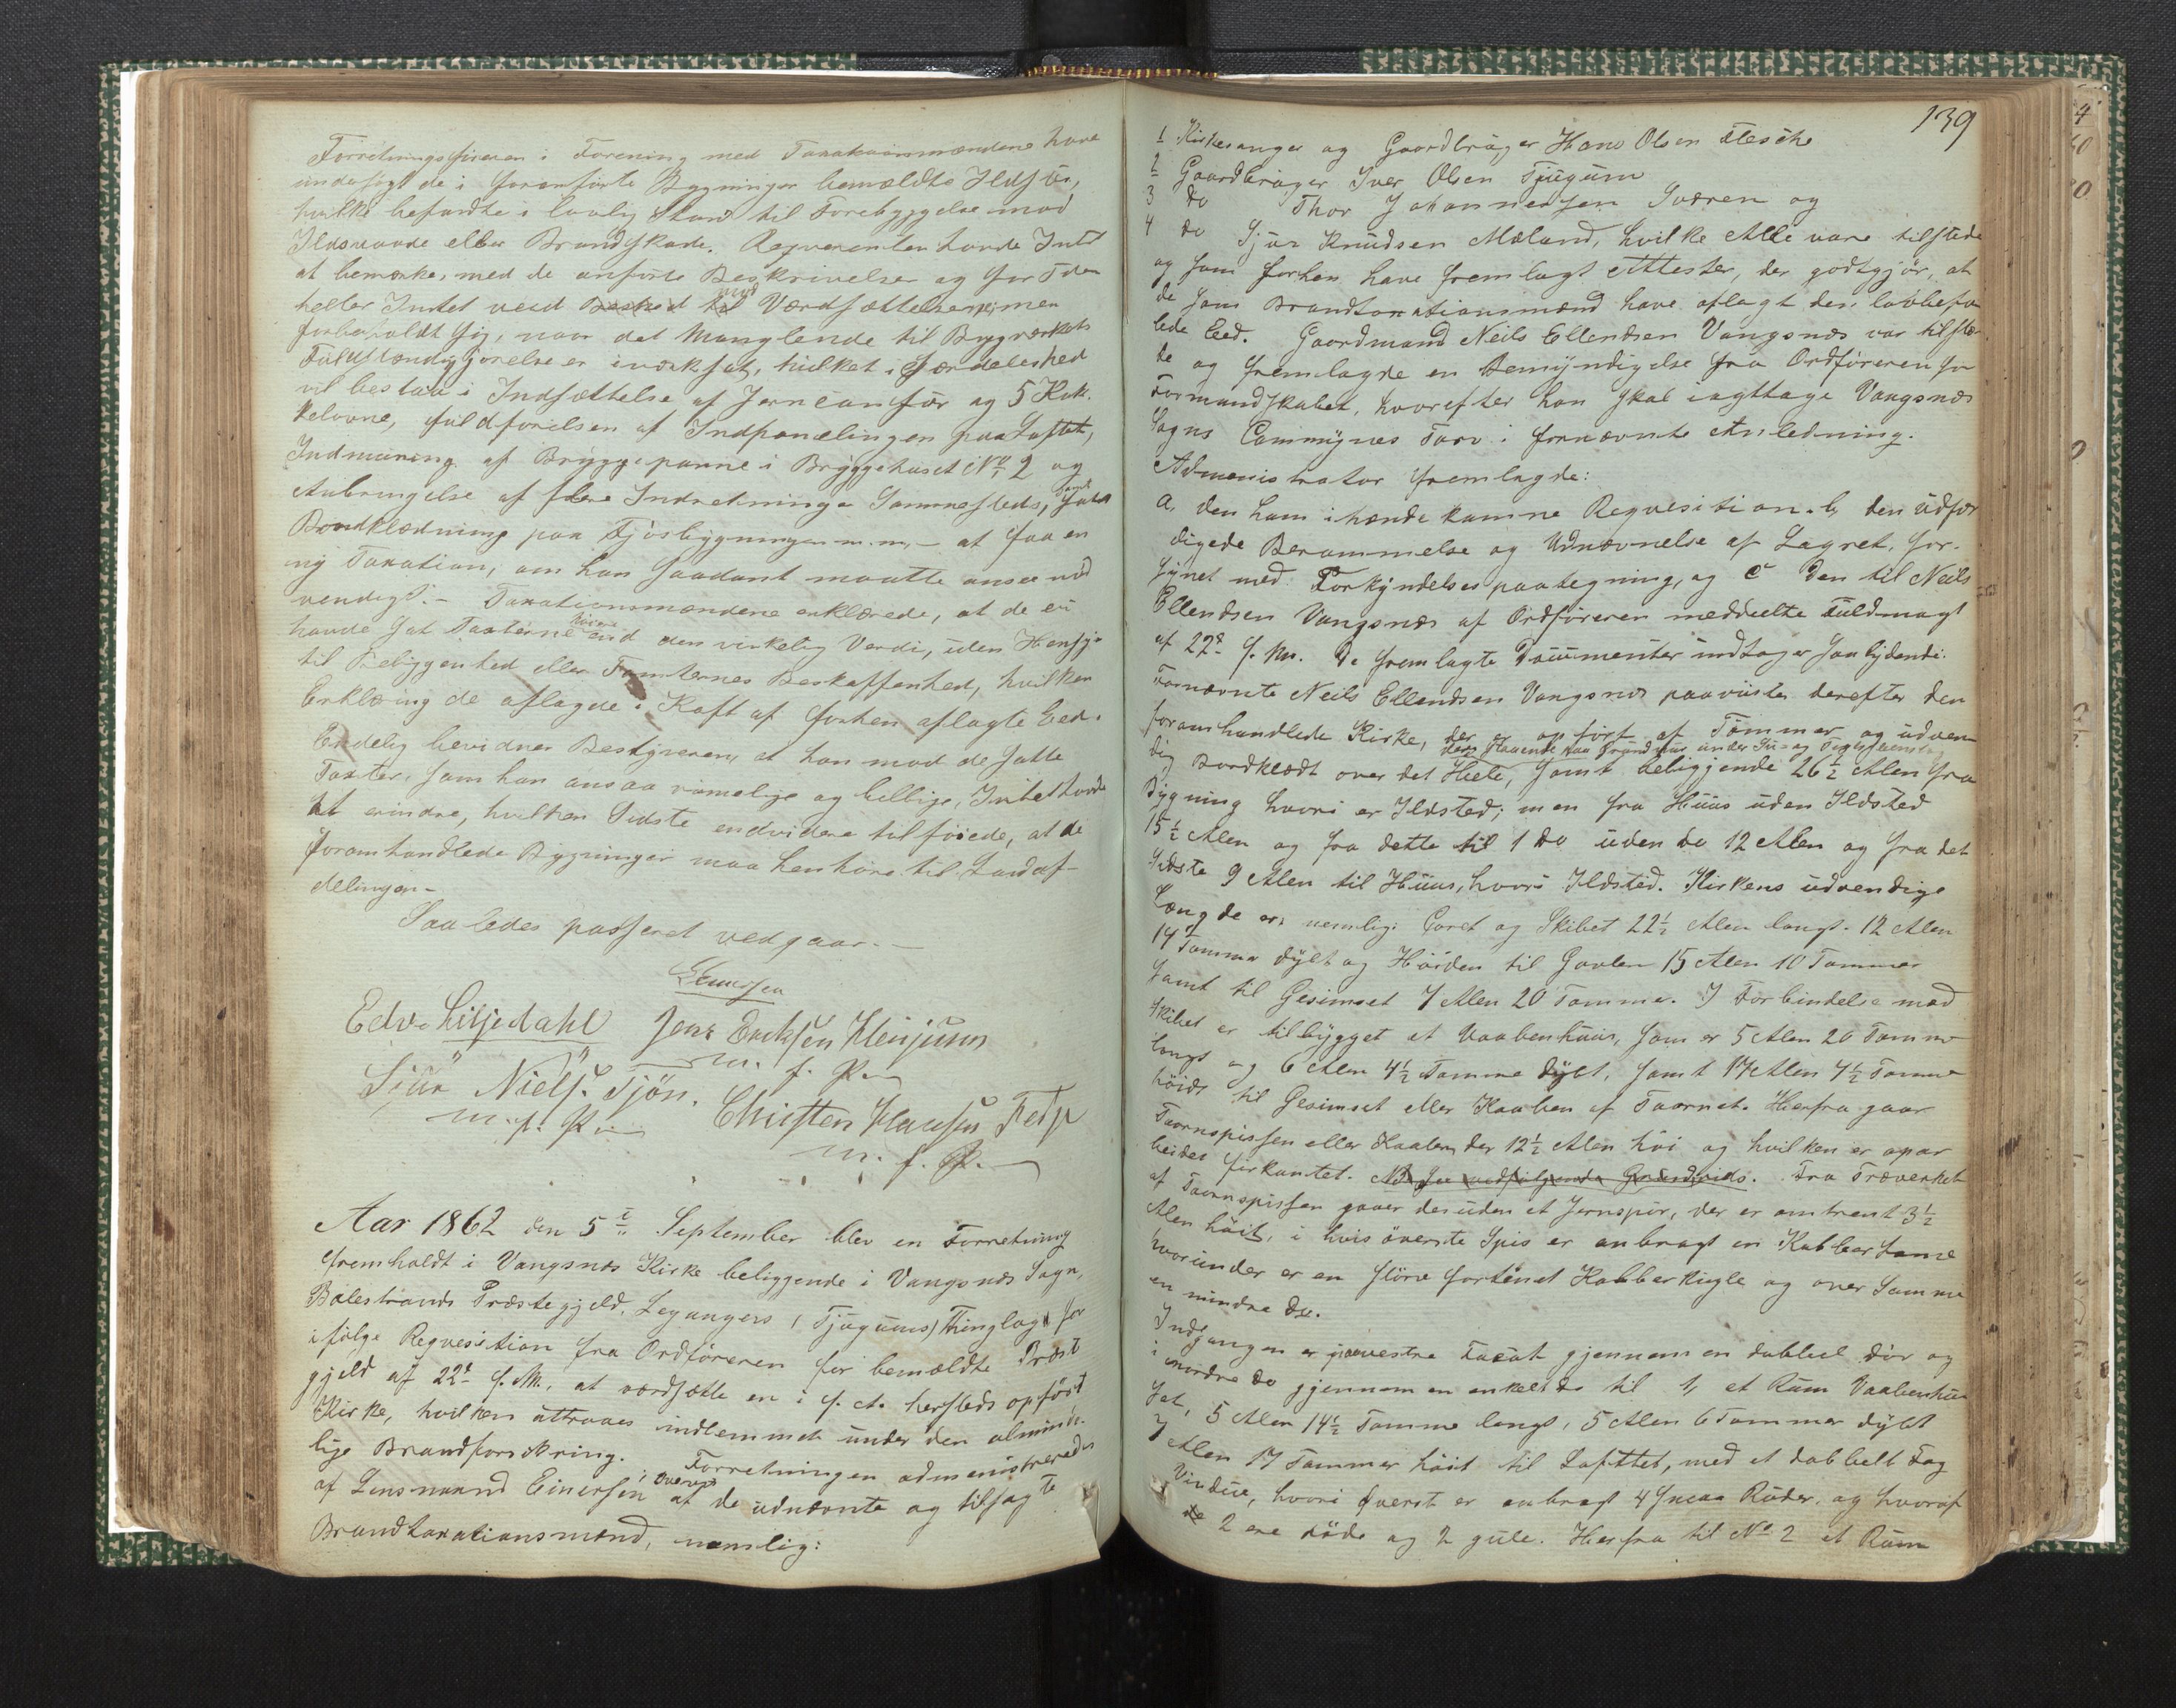 Forretningsföreren i Forening med Taxationsmændene have
undersögt de i foranförte Bygninger bemældte Ildstör,
hvilke befandtes i lovlig Stand til Forebyggelse mod
Ildsvaade eller Brandskade. Reqvirenten havde Intet
at bemærke, med de anförte Beskrivelser og
heller Intet ved mod Værdsættelsen, men
forbeholdt sig, naar det Manglende til Bygværkets
Fuldstændiggjörelse er iværksat, hvilket i Særdeleshed
vil bestaa i Indsættelse af og 5 Kak-
kelovne, fuldförelsen af Indpanelingen paa Loftet,
Indmuring af Bryggepanne i Bryggehuset No 2 og
Anbringelse af flere Indretninger Sammesteds, samt
Bordklædning paa Fjösbygningen m.m. – at faa en
ny Taxation, om han saadant maatte ansee nöd
vendigt. – Taxationsmændene erklærede, at de ei
havde sat Taxterne höiere end den virkelig Verdi, uden Hensyn
til Bebyggenhed eller Tomternes Beskaffenhed, hvilken
Erklæring de aflagde i Kraft af forhen aflagte Eed.
Endelig bevidner Bestyreren, at han mod de satte
Taxter, som han ansaa rimelige og billige, Intet havde
at erindre, hvilken Sidste endvidere tilföiede, at de
foromhandlede Bygninger maa henhöre til Landaf-
delingen –
Saaledes passeret vedgaar. –
Einersen
Edv. Liljedahl Jens Ericksen Menjum
m. f. P.
Sjur Niels. Tjön. Christen Hansen Fejs
m. f. P.
m. f. P.
Aar 1862 den 5te September blev en Forretning
fremholdt i Vangsnæs Kirke beliggende i Vangsnæs Sogn,
Balestrands Præstegjeld, Leganger (Tjugums) Thinglag
ifölge Reqvesition fra Ordföreren for bemældte Præste
gjeld af 22de f. M., at værdsætte en i f. A. hersteds opfört
Kirke, hvilken attraaes indlemmet under den almind-
lige Brandforsikring. Forretningen administreredes
af Lensmand Einersen i Overvær af de udnævnte og tilsagte
Brandtaxationsmænd, nemlig:
139
1 Kirkesanger og Gaardbruger Hans Olsen Flesche
2 Gaardbruger Iver Olsen Tjugum
3 do Thor Johannesen Sværen og
4 do Sjur Knudsen Mæland, hvilke Alle vare tilstede
og som forhen have fremlagt Attester, der godtgjör, at
de som Brandtaxationsmænd have aflagt den lovbefa
lede Eed. Gaardmand Neils Ellendsen Vangsnæs var tilste-
de og fremlagde en Bemyndigelse fra Ordföreren for
Formandskabet, hvorefter han skal iagttage Vangsnæs
Sogns Commynes Tarv i fornævnte Anledning.
Administrator fremlagde:
a, den ham ihænde komne Reqvesition. b, den udfær
digede Berammelse og Udnævnelse af Lagret, for-
synet med Forkyndelsespaategning, og c den til Neils
Ellendsen Vangsnæs af Ordföreren meddeelte Fuldmagt
af 22de f. M. De fremlagte Documenter indtages saalydende:
Fornævnte Neils Ellendsen Vangsnæs paaviiste derefter den
foromhandlede Kirke, der er opfört af Tömmer og udven
staaende paa Grundmur under
dig Bordklædt over det Hele, samt beliggende 26½ Alen fra
Bygning hvori er Ildsted; men fra Huus uden Ildsted
15½ Alen og fra dette til 1 do uden do 12 Alen og fra det
Sidste 9 Alen til Huus, hvori Ildsted. Kirkens udvendige
Længde er, nemlig: Coret og Skibet 22½ Alen langt. 12 Alen
14 Tommer dybt og Höiden til Gavlen 15 Alen 10 Tommer
samt til Gesimset 7 Alen 20 Tomme. I Forbindelse med
Skibet er tilbygget et Vaabenhuus, som er 5 Alen 20 Tomme
langt og 6 Alen 4½ Tomme dybt, samt 17 Alen 7½ Tomme
höide til Gesimset eller af Taarnet. Herfra gaar
Taarnspissen eller der 12½ Alen höi og hvilken er opar
beidet firkantet. NB See vedfölgende Grundrids. Fra Træverket
af Taarnspissen gaaer desuden et Jernspiir, der er omtrent 3½
Alen höit, i hvis överste Spis er anbragt en Kobber
hvorunder er en större fortinnet Kobberkugle og over Samme
en mindre do.
Indgangen er paa vestre Facat gjennem en dobbel dör og
i nordre do gjennem en enkelt do til 1, et Rum Vaabenhu
set, 5 Alen 14½ Tomme langt, 5 Alen 6 Tommer dybt
7 Alen 17 Tommer höit til Lofttet, med et dobbelt Fag
Vindue, hvori Överst er anbragt 4 smaa Ruder, og hvoraf
de 2 ere röde og 2 gule. Herfra til No 2 et Rum